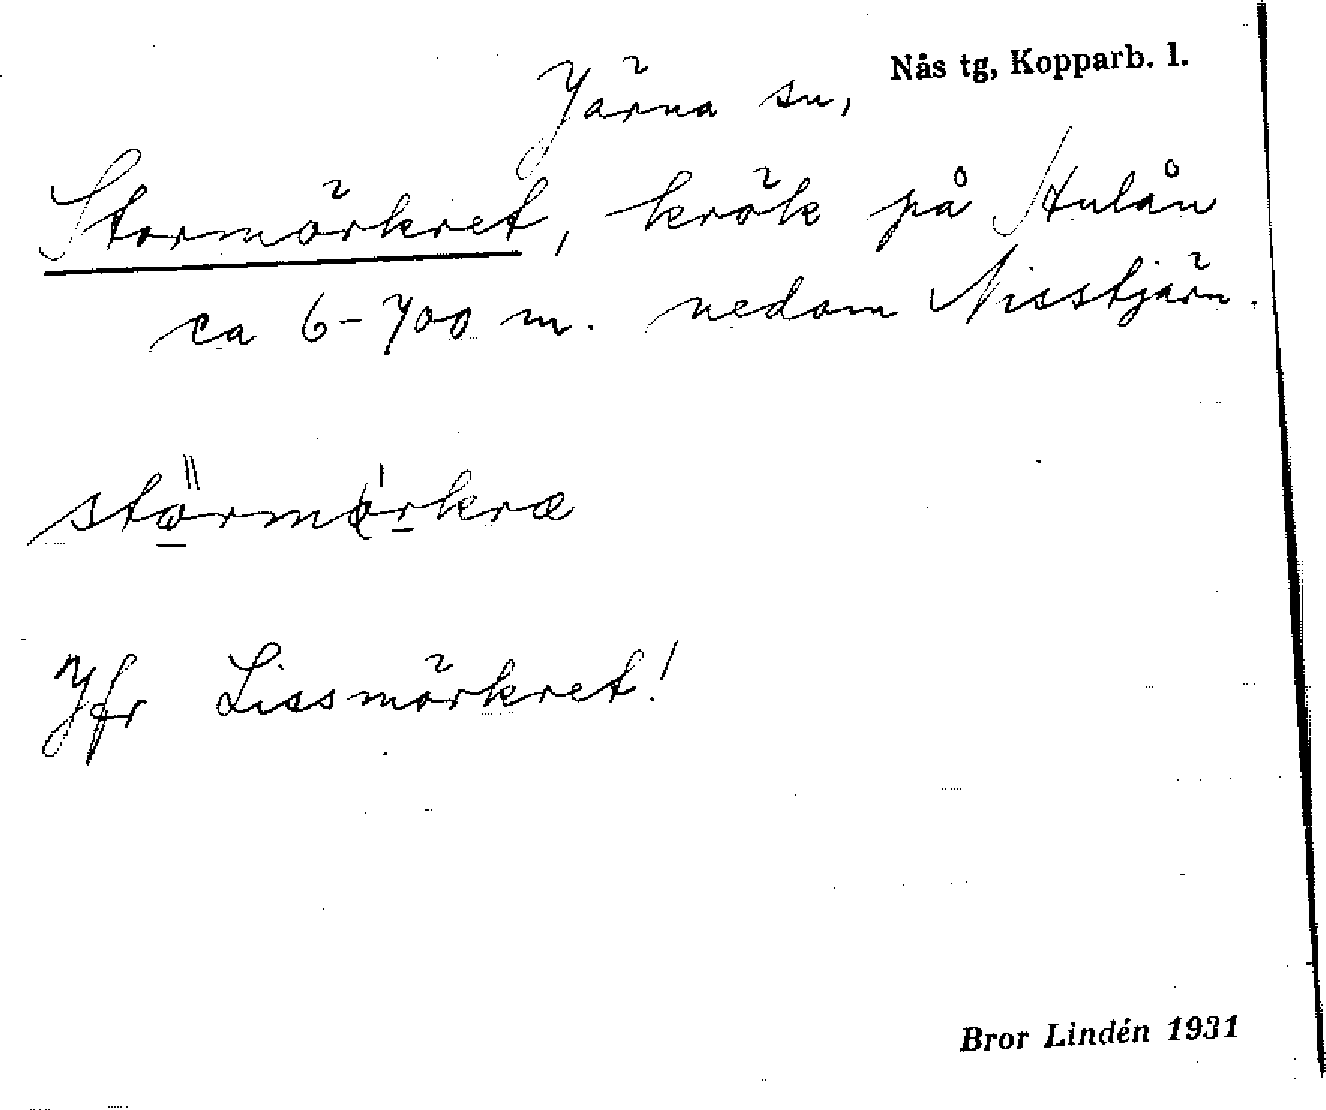 Järna sn, Nås tg, Kopparb. l.
Stormörkret, krök på Hulån
ca 6-700 m. nedom Nisstjärn.
störmörkræ
Jfr Lissmörkret!
Bror Lindén 1931